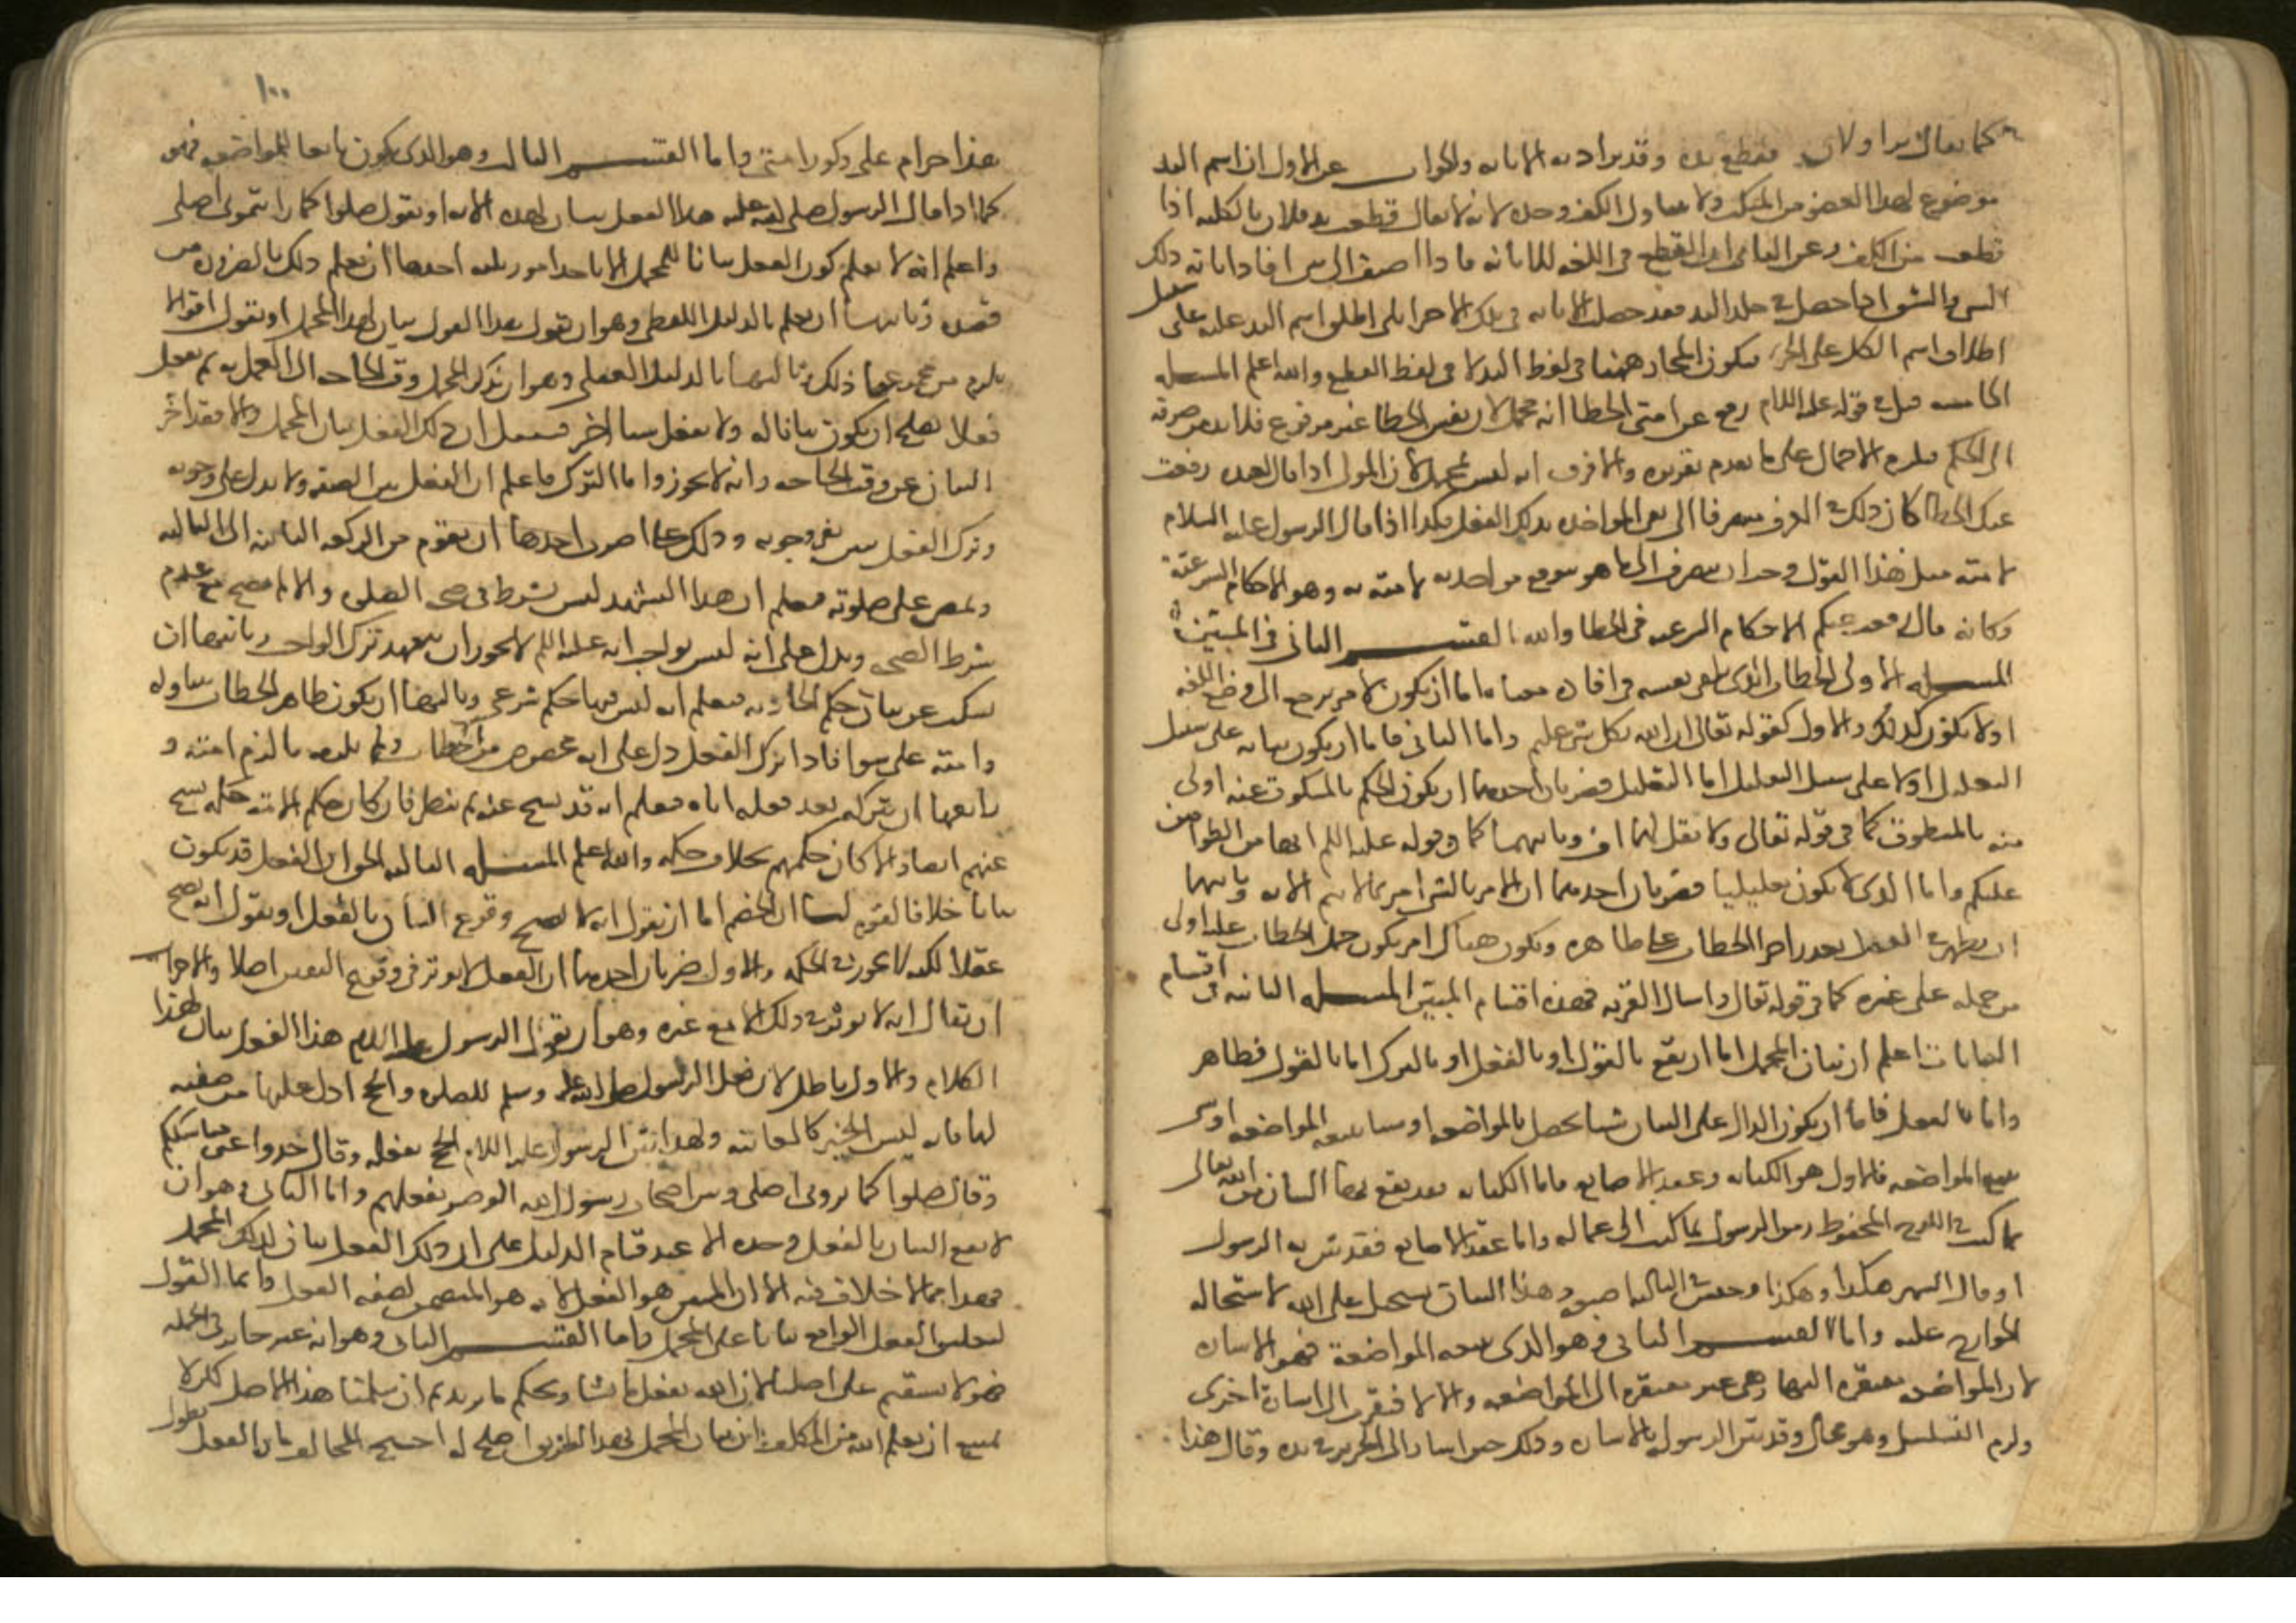 كما يقال برا ولان فقطع يده وقد يراد به الابانه والجواب عن الاول ان اسم اليد
موضوع لهذا العضو من المنكب ولا يتناول الكف وحده لانه لا يقال قطعت يد فلان بالكليه اذا
قطعت من الكف وعن الثانى ان القطع فى اللغه للابانه فاذا اضيف الى شى افاد ابانة ذلك
الشى والشق اذا حصل فى جلد اليد فقد حصلت الابانه فى تلك الاجزا بلى اطلق اسم اليد عليه على سبيل
اطلاق اسم الكل على الجز فيكون المجاز ههنا فى لفظ اليد لا فى لفظ القطع والله اعلم المسله
الخامسه قيل فى قوله عليه السلام رفع عن امتى الخطا انه مجمل لان نفس الخطا غير مرفوع فلا بد من صرفه
الى الحكم فيلزم الاجمال على ما تقدم تقريره والاقرب انه ليس بمجمل لان المولى اذا قال لعبده رفعت
عنك الخطا كان ذلك فى العرف منصرفا الى نفى المواخذه بذلك الفعل فكذا اذا قال الرسول عليه السلام
لامته مثل هذا القول وجب ان ينصرف الى ما هو يتوقع مواخذته لامته به وهو الاحكام الشرعية
وكانه قال رفعت عنكم الاحكام الشرعيه فى الخطا والله القسم الثانى فى المبيّن
المسله الاولى الخطاب الذى يكفى بنفسه فى افاده معناه اما ان يكون لامر يرجع الى وضع اللغه
اولا يكون كذلك والاول كقوله تعالى ان الله بكل شى عليم واما الثانى فاما ان يكون بيانه على سبيل
التعليل اولا على سبيل التعليل اما التعليل فضربان احدهما ان يكون الحكم بالمسكوت عنه اولى
منه بالمنطوق كما فى قوله تعالى ولا تقل لهما اف وثانيهما كما فى قوله عليه السلام انها من الطوافين
عليكم واما الذى لا يكون تعليليا فضربان احدهما ان الامر بالشى امر بما لا يتم الا به وثانيهما
ان يظهر فى العقل تعذر اجرا الخطاب على ظاهره ويكون هناك امر يكون حمل الخطاب عليه اولى
من حمله على غيره كما فى قوله تعالى واسال القريه فهذه اقسام المبيّن المسله الثانيه فى اقسام
البيانات اعلم ان بيان المجمل اما ان يقع بالقول او بالفعل او بالترك اما بالقول فظاهر
واما بالفعل فاما ان يكون الدال على البيان شيا يحصل بالمواضعه او شيا يتبعه المواضعه او شى
يتبع المواضعه فالاول هو الكتابه وعقد الاصابع فاما الكتابه فقد يقع بها البيان من الله تعالى
بما كتب فى اللوح المحفوظ ومن الرسول بما كتب الى عماله واما عقد الاصابع فقد بين به الرسول
اذ قال الشهر هكذا وهكذا وحبس فى الثالثه اصبعه وهذا البيان يستحيل على الله لاستحاله
الجوارح عليه واما القسم الثانى فهو الذى يتبعه المواضعة فهو الاشاره
لان المواضعه مفتقره اليها وهى غير مفتقره الى المواضعه والا لافتقرت الى اشارة اخرى
ولزم التسلسل وهو محال وقد بين الرسول بالاشاره وذلك حين اشار الى الحرير فى يده وقال هذا
١٠٠
هذا حرام على ذكور امتى واما القسم الثالث وهو الذى يكون تابعا للمواضعه فهو
كما اذا قال الرسول صلى الله عليه هذا الفعل بيان لهذه الايه او يقول صلوا كما رايتمونى اصلى
واعلم انه لا يعلم كون الفعل بيانا للمجمل الا باحد امور ثلثه احدها ان يعلم ذلك بالضروره من
قصده وثانيها ان يعلم بالدليل اللفظى وهو ان يقول هذا الفعل بيان لهذا المجمل او يقول اقوالا
يلزم من مجموعها ذلك وثالثها بالدليل العقلى وهو ان يذكر المجمل وقت الحاجه الى العمل به ثم يفعل
فعلا يصلح ان يكون بيانا له ولا يفعل شيا اخر فيعلم ان ذلك الفعل بيان المجمل والا فقد اخر
البيان عن وقت الحاجه وانه لا يجوز واما الترك فاعلم ان الفعل يبين الصفه ولا يدل على وجوبه
وترك الفعل يبين نفى وجوبه وذلك على اضرب احدها ان يقوم من الركعه الثانيه الى الثالثه
ويمضى على صلوته فيعلم ان هذا التشهد ليس بشرط فى صحه الصلوه والا لم تصح مع عدم
شرط الصحه ويدل على انه ليس بواجب انه عليه السلم لا يجوز ان يتعمد ترك الواجب وثانيها ان
يسكت عن بيان حكم الحادثه فيعلم انه ليس فيها حكم شرعى وثالثها ان يكون ظاهر الخطاب يتناوله
وامته على سوا فاذا ترك الفعل دل على انه مخصوص من الخطاب ولم يلزمه ما لزم امته و
رابعها ان يتركه بعد فعله اياه فيعلم انه قد نسخ عنه ثم ينظر فان كان حكم الامه حكمه نسخ
عنهم ايضا والا كان حكمهم بخلاف حكمه والله اعلم المسله الثالثه الحق ان الفعل قد يكون
بيانا خلافا لقوم لنا ان الخصم اما ان يقول انه لا يصح وقوع البيان بالفعل او يقول انه يصح
عقلا لكنه لا يجوز فى الحكمه والاول ضربان احدهما ان الفعل لا يوثر فى وقوع التبيين اصلا والاخر
ان يقال انه لا يوثر فى ذلك الا مع غيره وهو ان يقول الرسول عليه السلام هذا الفعل بيان لهذا
الكلام والاول باطل لان فعل الرسول صلى الله عليه وسلم للصلوه والحج ادل عليها من صفته
لها فانه ليس الخبر كالمعاينه ولهذا بيّن الرسول عليه السلام الحج بفعله وقال خذوا عنى مناسككم
وقال صلوا كما ترونى اصلى وبين اصحاب رسول الله الوضو بفعلهم واما الثانى وهو ان
لا يقع البيان بالفعل وحده الا عند قيام الدليل على ان ذلك الفعل بيان لذلك المجمل
فهذا مما لا خلاف فيه الا ان المبين هو الفعل لانه هو المتضمن لصفه الفعل وانما القول
لتعليق الفعل الواقع بيانا على المجمل واما القسم الثانى وهو انه غير جايز فى الحكمه
فهو لا يستقيم على اصلنا لان الله يفعل ما يشا ويحكم ما يريد ثم ان سلمنا هذا الاصل لكن لا
يمتنع ان يعلم الله من المكلف ان بيان المجمل بهذا الطريق اصلح له احتج المخالف بان الفعل يطول